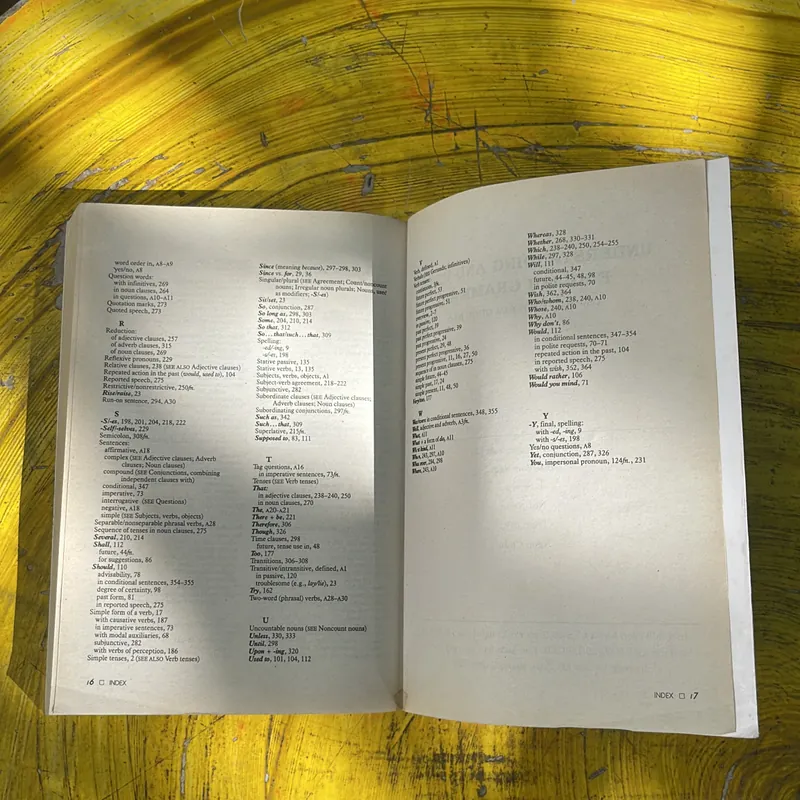 word order in, A8–A9
yes/no, A8
Question words:
with infinitives, 269
in noun clauses, 264
in questions, A10–A11
Quotation marks, 273
Quoted speech, 273
R
Reduction:
of adjective clauses, 257
of adverb clauses, 315
of noun clauses, 269
Reflexive pronouns, 229
Relative clauses, 238 (SEE ALSO Adjective clauses)
Repeated action in the past (would, used to), 104
Reported speech, 275
Restrictive/nonrestrictive, 250fn.
Rise/raise, 23
Run-on sentence, 294, A30
S
-S/-es, 198, 201, 204, 218, 222
-Self/-selves, 229
Semicolon, 308fn.
Sentences:
affirmative, A18
complex (SEE Adjective clauses; Adverb
clauses; Noun clauses)
compound (SEE Conjunctions, combining
independent clauses with)
conditional, 347
imperative, 73
interrogative (SEE Questions)
negative, A18
simple (SEE Subjects, verbs, objects)
Separable/nonseparable phrasal verbs, A28
Sequence of tenses in noun clauses, 275
Several, 210, 214
Shall, 112
future, 44fn.
for suggestions, 86
Should, 110
advisability, 78
in conditional sentences, 354–355
degree of certainty, 98
past form, 81
in reported speech, 275
Simple form of a verb, 17
with causative verbs, 187
in imperative sentences, 73
with modal auxiliaries, 68
subjunctive, 282
with verbs of perception, 186
Simple tenses, 2 (SEE ALSO Verb tenses)
16 □ INDEX
Since (meaning because), 297–298, 303
Since vs. for, 29, 36
Singular/plural (SEE Agreement; Count/noncount
nouns; Irregular noun plurals; Nouns, used
as modifiers; -S/-es)
Sit/set, 23
So, conjunction, 287
So long as, 298, 303
Some, 204, 210, 214
So that, 312
So…that/such…that, 309
Spelling:
-ed/-ing, 9
-s/-es, 198
Stative passive, 135
Stative verbs, 13, 135
Subjects, verbs, objects, A1
Subject-verb agreement, 218–222
Subjunctive, 282
Subordinate clauses (SEE Adjective clauses;
Adverb clauses; Noun clauses)
Subordinating conjunctions, 297fn.
Such as, 342
Such…that, 309
Superlative, 215fn.
Supposed to, 83, 111
T
Tag questions, A16
in imperative sentences, 73fn.
Tenses (SEE Verb tenses)
That:
in adjective clauses, 238–240, 250
in noun clauses, 270
The, A20–A21
There + be, 221
Therefore, 306
Though, 326
Time clauses, 298
future, tense use in, 48
Too, 177
Transitions, 306–308
Transitive/intransitive, defined, A1
in passive, 120
troublesome (e.g., lay/lie), 23
Try, 162
Two-word (phrasal) verbs, A28–A30
U
Uncountable nouns (SEE Noncount nouns)
Unless, 330, 333
Until, 298
Upon + -ing, 320
Used to, 101, 104, 112
V
Verb, defined, A1
Verbals (SEE Gerunds; infinitives)
Verb tenses:
future perfect progressive, 51
future progressive, 51
overview, 2–7
in passive, 120
past perfect, 39
past perfect progressive, 39
past progressive, 24
present perfect, 29, 48
present perfect progressive, 36
present progressive, 11, 16, 27, 50
sequence of in noun clauses, 275
simple future, 44–45
simple past, 17, 24
simple present, 11, 48, 50
W
Was/were in conditional sentences, 348, 355
Well, adjective and adverb, A3fn.
What, A11
What + a form of do, A11
What kind, A11
When, 243, 297, A10
Where, 243, A10
Whereas, 328
Whether, 268, 330–331
Which, 238–240, 250, 254–255
While, 297, 328
Will, 111
conditional, 347
future, 44–45, 48, 98
in polite requests, 70
Wish, 362, 364
Who/whom, 238, 240, A10
Whose, 240, A10
Why, A10
Why don't, 86
Would, 112
in conditional sentences, 347–354
in polite requests, 70–71
repeated action in the past, 104
in reported speech, 275
with wish, 362, 364
Would rather, 106
Would you mind, 71
Y
-Y, final, spelling:
with -ed, -ing, 9
with -s/-es, 198
Yes/no questions, A8
Yet, conjunction, 287, 326
You, impersonal pronoun, 124fn., 231
INDEX □ 17